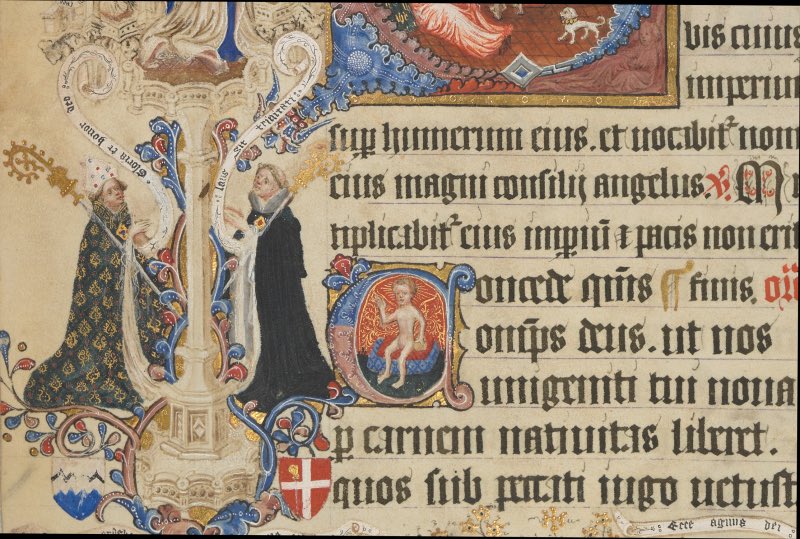 vis cuius
imperium
sup humerum eius. et vocabit᷑ nom
eius magni consilij angelus. R. M
tiplicabit᷑ eius imperiū ⁊ pacis non erit
Concede qm̄s ¶ finis.
omp̄s deus. ut nos
unigeniti tui nova
p carnem nativitas liberet.
quos sub peccati iugo vetust
Gloria et honor deo
laus sit trinitati.
Ecce agnus dei